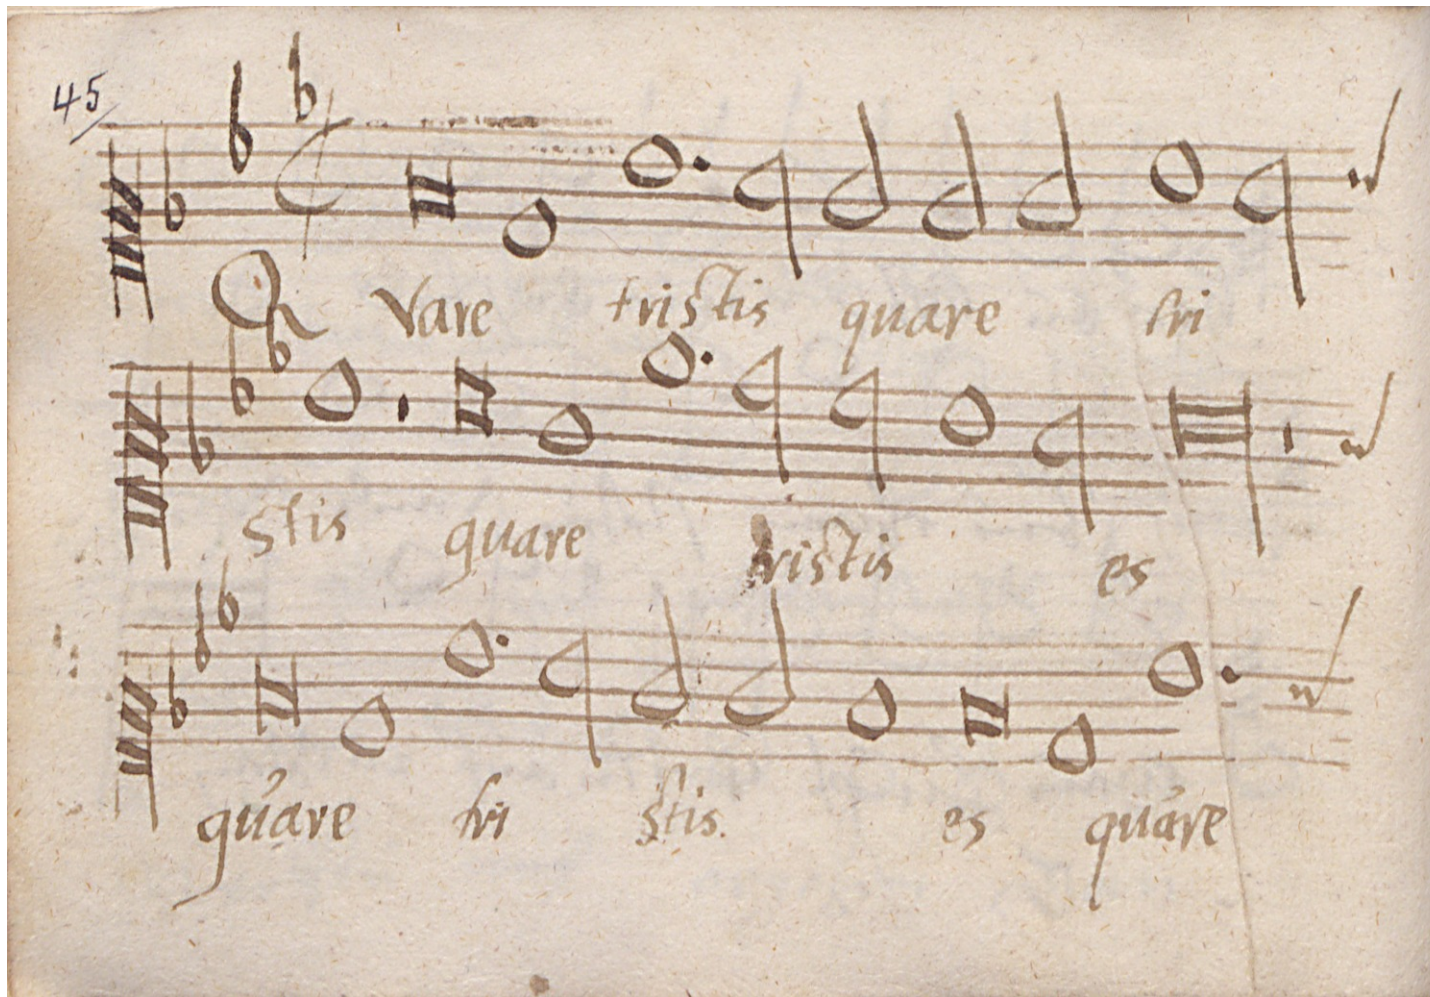 45
Quare tristis quare tri
stis quare tristis es
quare tri stis es quare